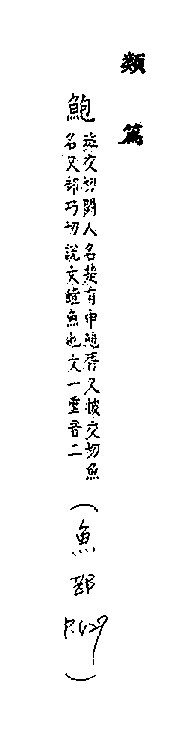 類篇
鮑
班交切闕人名楚有申鮑胥又披交切魚
名又部巧切說文饐魚也文一重音二
(魚部 P.429)